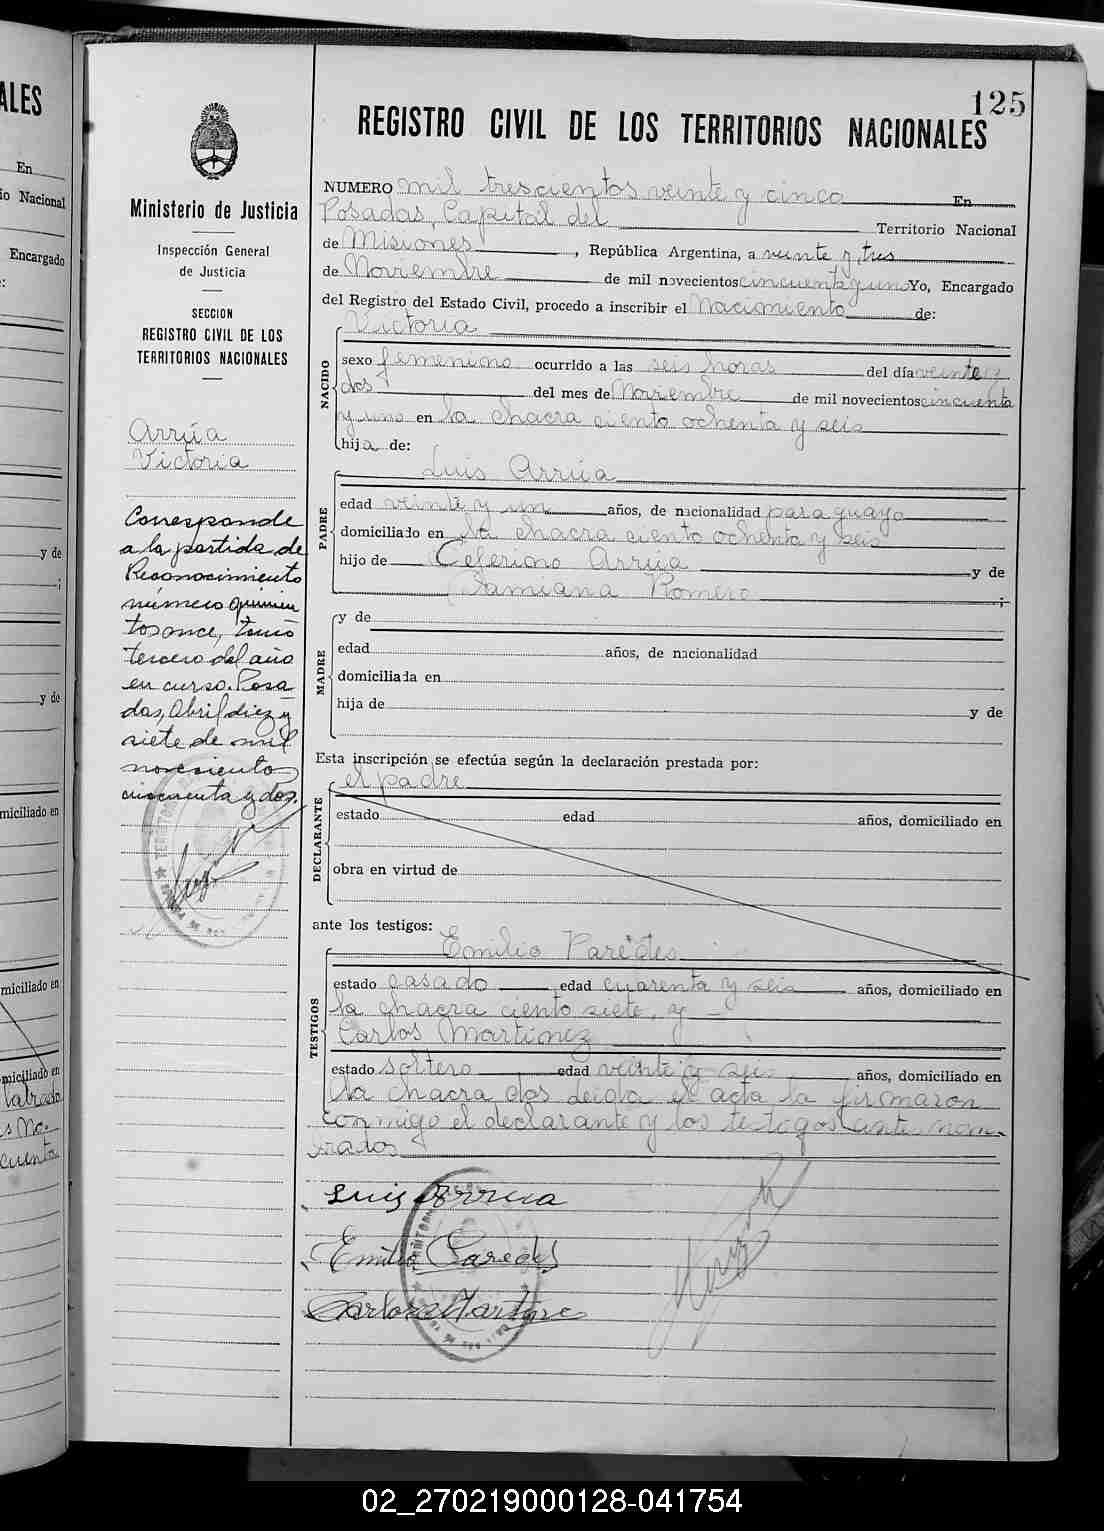 ALES
En
io Nacional
Encargado
:
y de
;
y de
miciliado en
miciliado en
miciliado en
labrada
s No.
cuenta
125
REGISTRO CIVIL DE LOS TERRITORIOS NACIONALES
Ministerio de Justicia
Inspección General
de Justicia
SECCION
REGISTRO CIVIL DE LOS
TERRITORIOS NACIONALES
Arrúa
Victoria
Corresponde
a la partida de
Reconocimiento
número quinien
tos once, tomo
tercero del año
en curso. Posa
das, Abril diez y
siete de mil
novecientos
cincuenta y dos.
NUMERO mil trescientos veinte y cinco En
Posadas, Capital del Territorio Nacional
de Misiones, República Argentina, a veinte y tres
de Noviembre de mil novecientos cincuenta y uno Yo, Encargado
del Registro del Estado Civil, procedo a inscribir el Nacimiento de:
NACIDO
Victoria
sexo femenino ocurrido a las seis horas del día veinte y
dos del mes de Noviembre de mil novecientos cincuenta
y uno en la chacra ciento ochenta y seis
hija de:
PADRE
Luis Arrúa
edad veinte y un años, de nacionalidad paraguayo
domiciliado en la chacra ciento ochenta y seis
hijo de Ceferino Arrúa y de
Damiana Romero ;
MADRE
y de
edad años, de nacionalidad
domiciliada en
hija de y de
Esta inscripción se efectúa según la declaración prestada por:
el padre
DECLARANTE
estado edad años, domiciliado en
obra en virtud de
ante los testigos:
TESTIGOS
Emilio Paredes
estado casado edad cuarenta y seis años, domiciliado en
la chacra ciento siete, y
Carlos Martinez
estado soltero edad veinte y seis años, domiciliado en
la chacra dos leida el acta la firmaron
conmigo el declarante y los testigos ante nom-
brados
Luis Arrua
Emilio Paredes
Carlos Martinez
02_270219000128-041754